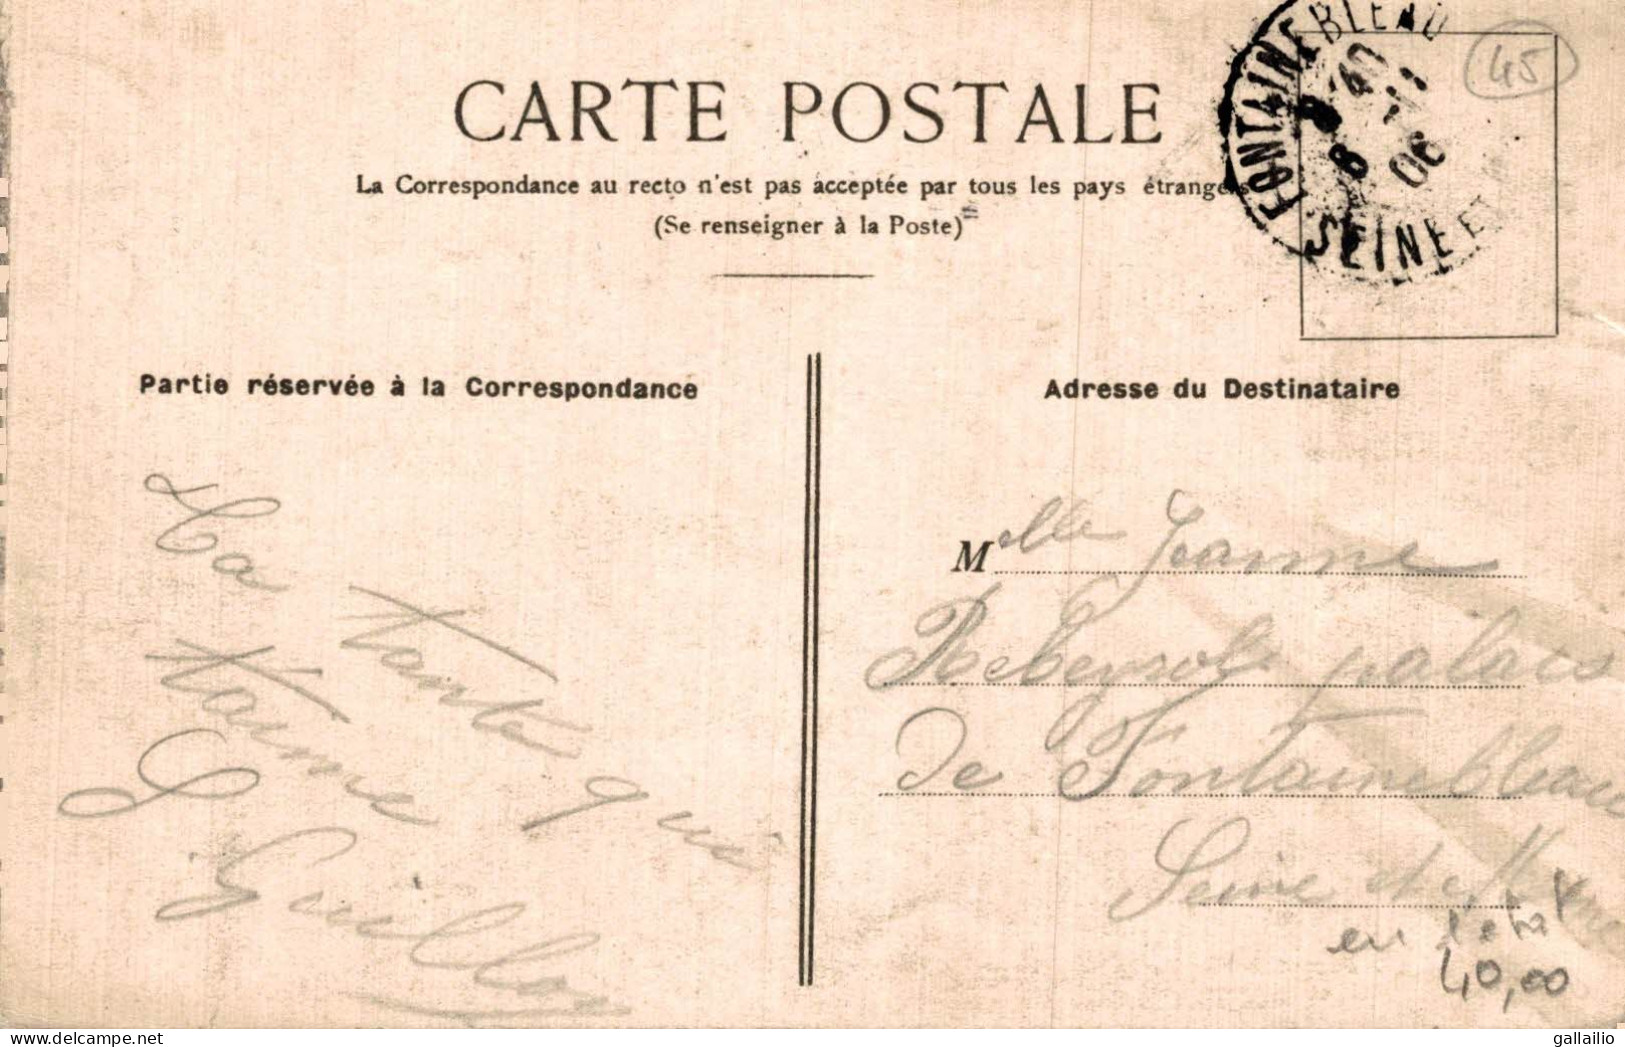 CARTE POSTALE
La Correspondance au recto n'est pas acceptée par tous les pays étrangers
(Se renseigner à la Poste)
FONTAINEBLEAU
8 06
SEINE ET
45
Partie réservée à la Correspondance
Ta tante qui
t'aime
Guillon
Adresse du Destinataire
Melle Jeanne
Rebeyrole palais
de Fontainebleau
Seine et Marne
en l'état
40,00
gallailio